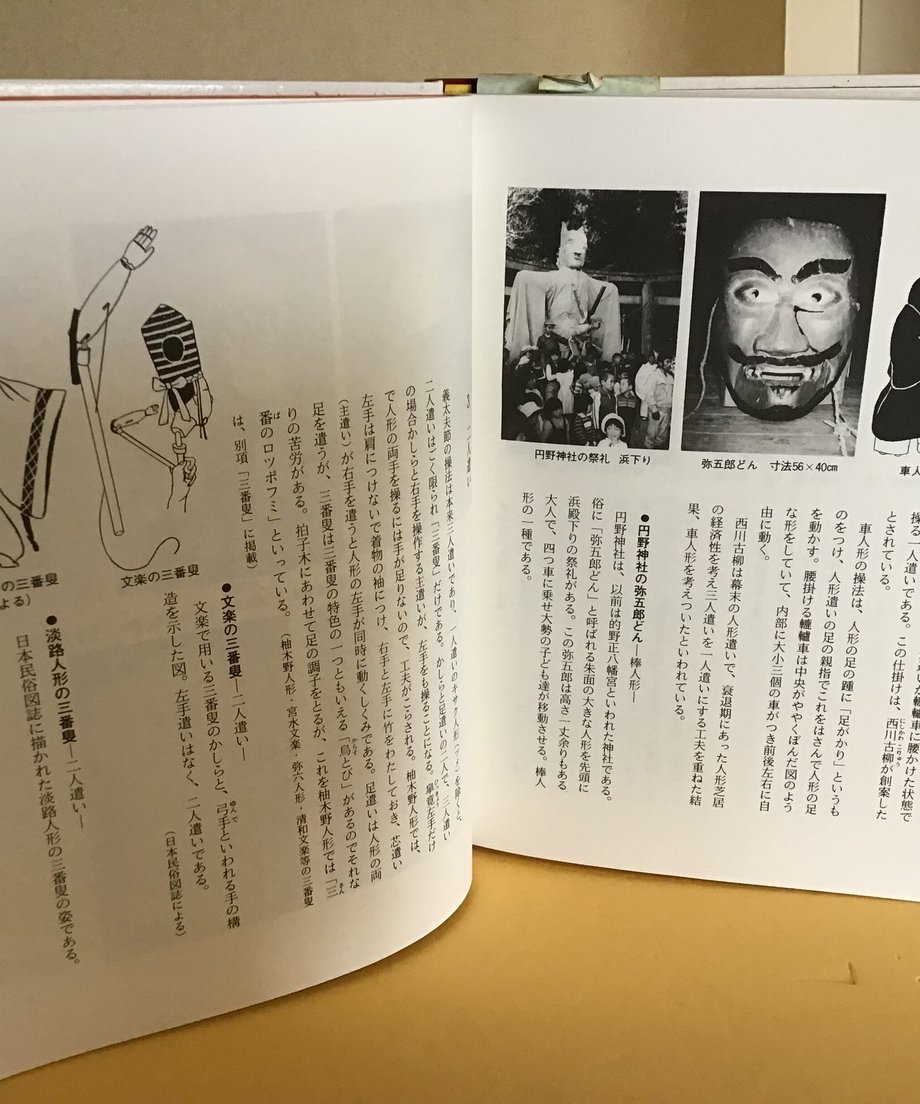 操る一人遣い
轆轤車に腰かけた状態で
とされている。この仕掛けは、西川古柳が創案した
車人形の操法は、人形の足の踵に「足がかり」というも
のをつけ、人形遣いの足の親指でこれをはさんで人形の足
を動かす。腰掛ける轆轤車は中央がややくぼんだ図のよう
な形をしていて、内部に大小三個の車がつき前後左右に自
由に動く。
西川古柳は幕末の人形遣いで、衰退期にあった人形芝居
の経済性を考え三人遣いを一人遣いにする工夫を重ねた結
果、車人形を考えついたといわれている。
車人
弥五郎どん　寸法56×40cm
円野神社の祭礼　浜下り
●円野神社の弥五郎どん―棒人形―
円野神社は、以前は的野正八幡宮といわれた神社である。
俗に「弥五郎どん」と呼ばれる朱面の大きな人形を先頭に
浜殿下りの祭礼がある。この弥五郎は高さ一丈余りもある
大人で、四つ車に乗せ大勢の子ども達が移動させる。棒人
形の一種である。
義太夫節の操法は本来三人遣いであり、
二人遣いはごく限られ「三番叟」だけである。かしらと足遣いの二人で、三人遣い
の場合かしらと右手を操作する主遣いが、左手をも操ることになる。畢竟左手だけ
で人形の両手を操るには手が足りないので、工夫がこらされる。柚木野人形では、
左手は肩につけないで着物の袖につけ、右手と左手に竹をわたしておき、芯遣い
（主遣い）が右手を遣うと人形の左手が同時に動くしくみである。足遣いは人形の両
足を遣うが、三番叟は三番叟の特色の一つともいえる「烏とび」があるのでそれな
りの苦労がある。拍子木にあわせて足の調子をとるが、これを柚木野人形では「三
番のロッポフミ」といっている。（柚木野人形・宮水文楽・弥六人形・清和文楽等の三番叟
は、別項「三番叟」に掲載）
文楽の三番叟
●文楽の三番叟―二人遣い―
文楽で用いる三番叟のかしらと、弓手といわれる手の構
造を示した図。左手遣いはなく、二人遣いである。
（日本民俗図誌による）
の三番叟
よる）
●淡路人形の三番叟―二人遣い―
日本民俗図誌に描かれた淡路人形の三番叟の姿である。